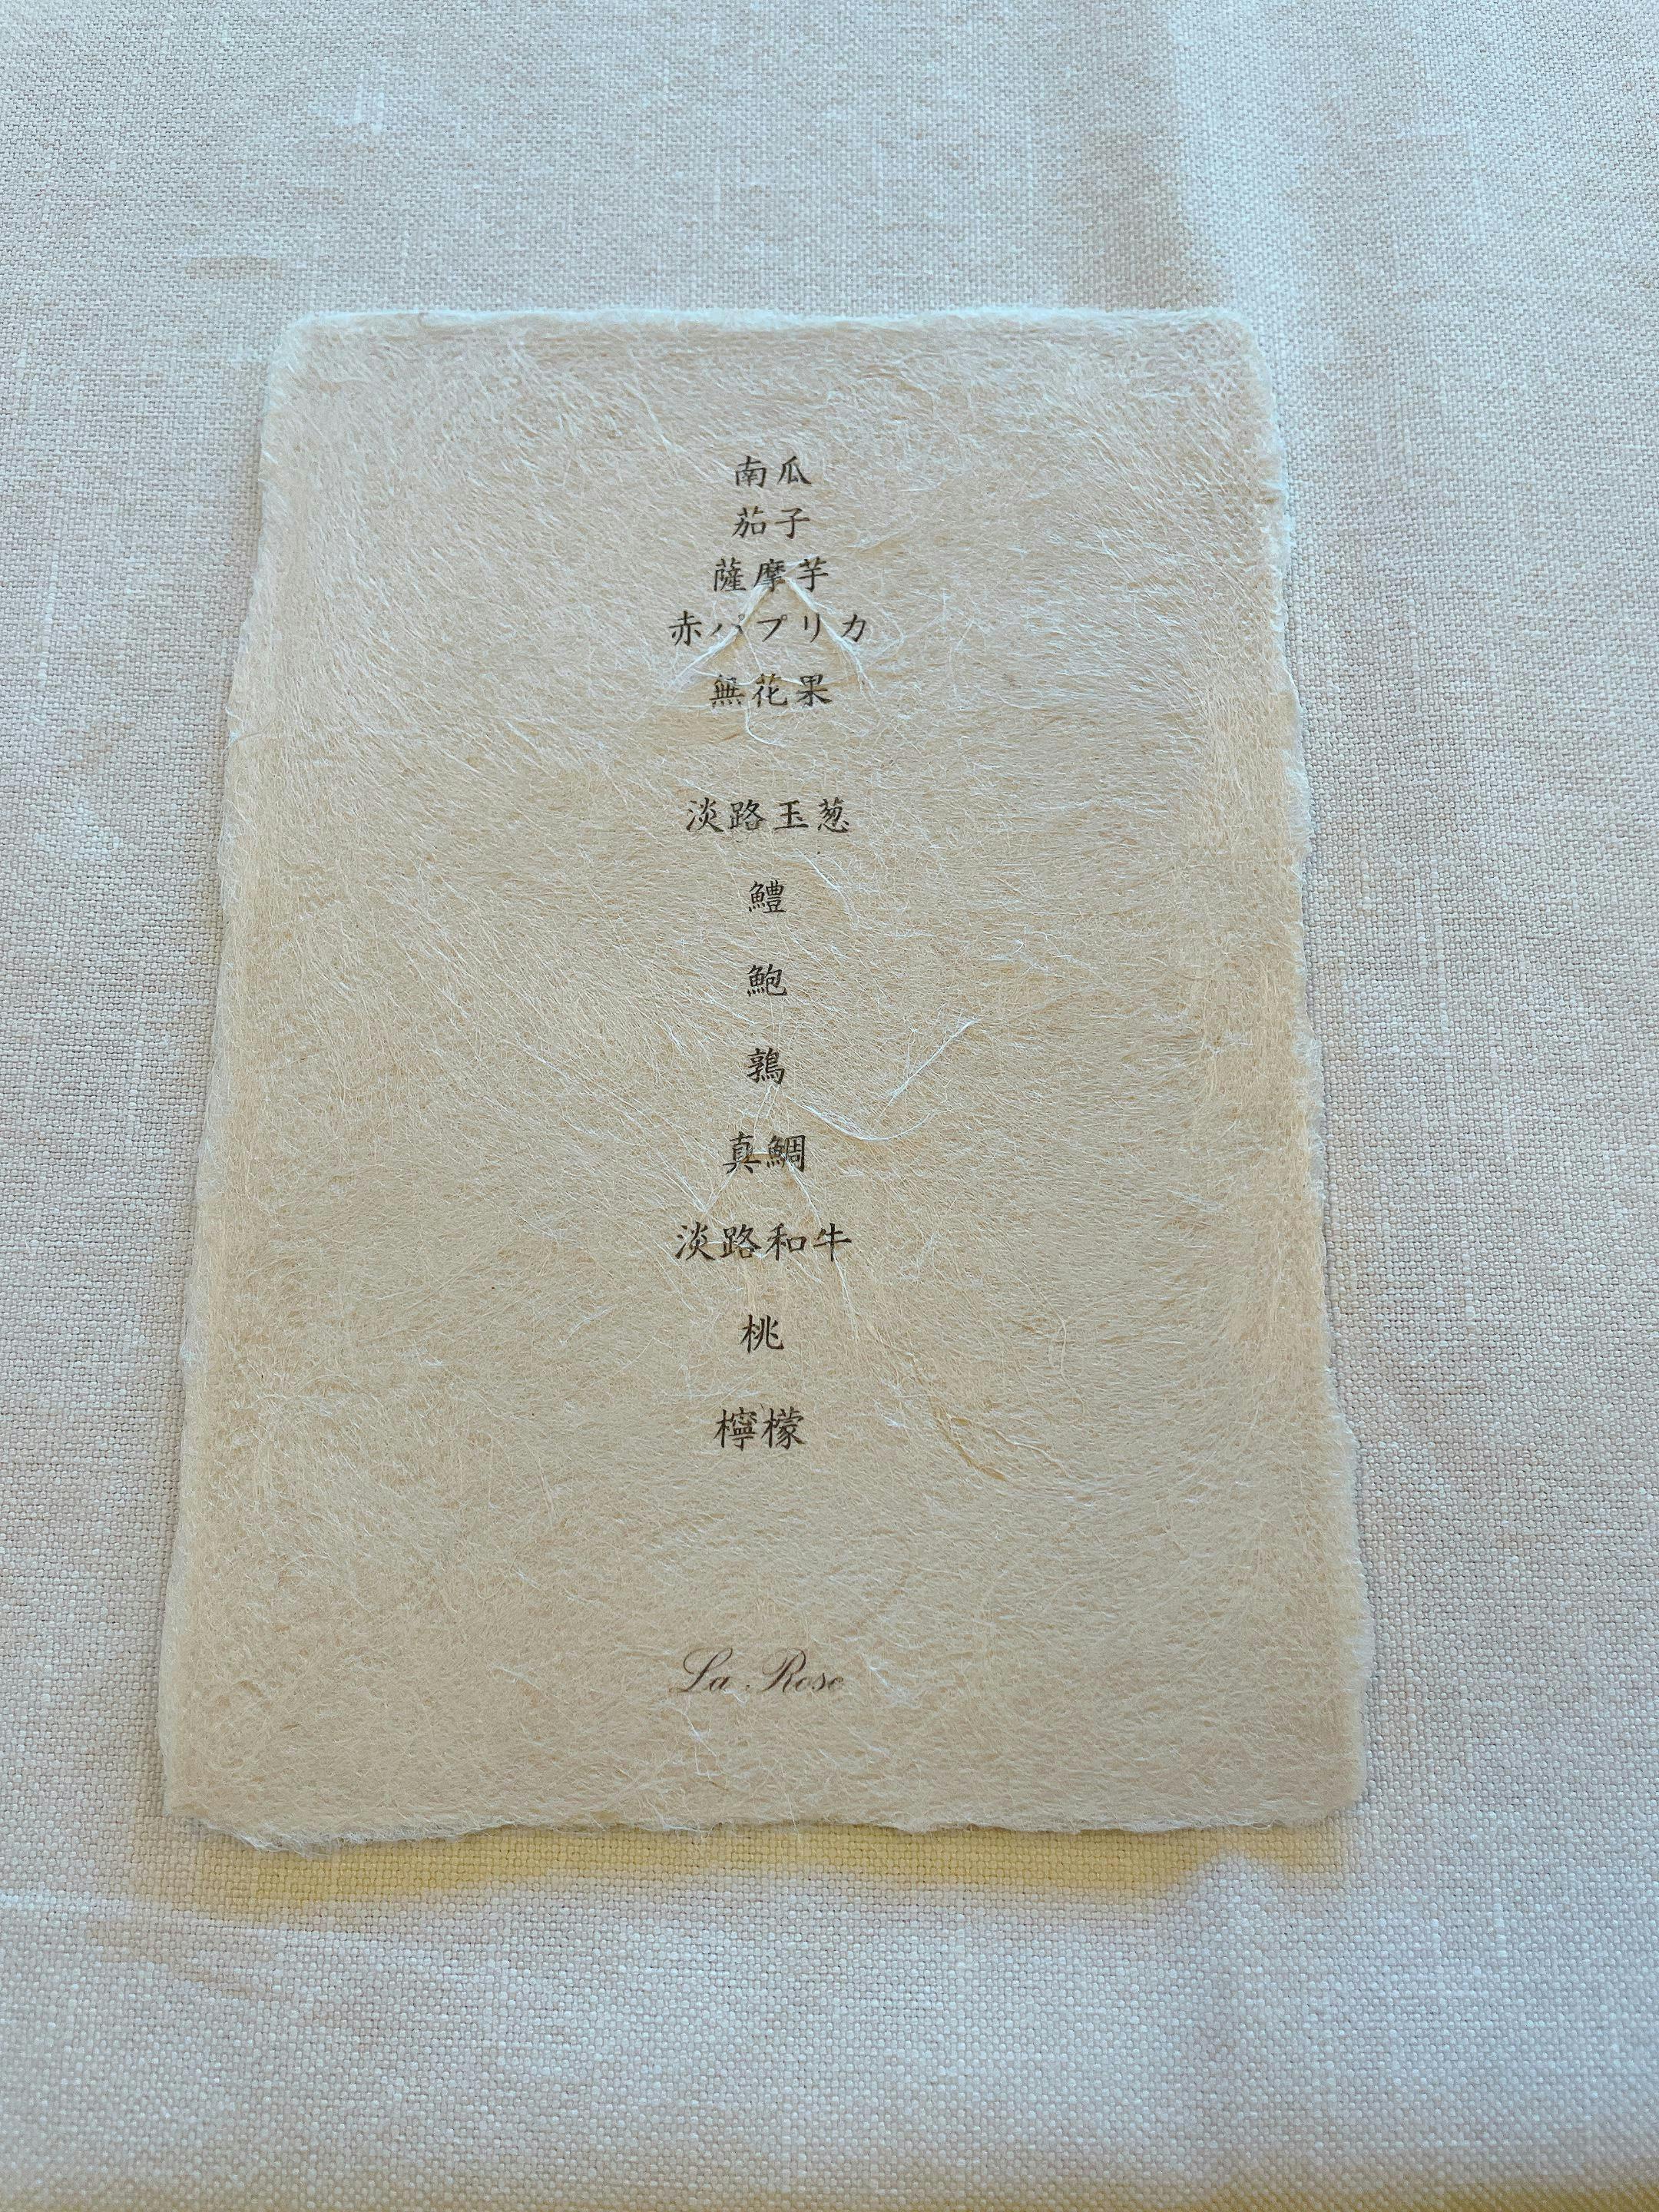 南瓜
茄子
薩摩芋
赤パプリカ
無花果
淡路玉葱
鱧
鮑
鶉
真鯛
淡路和牛
桃
檸檬
La Rose